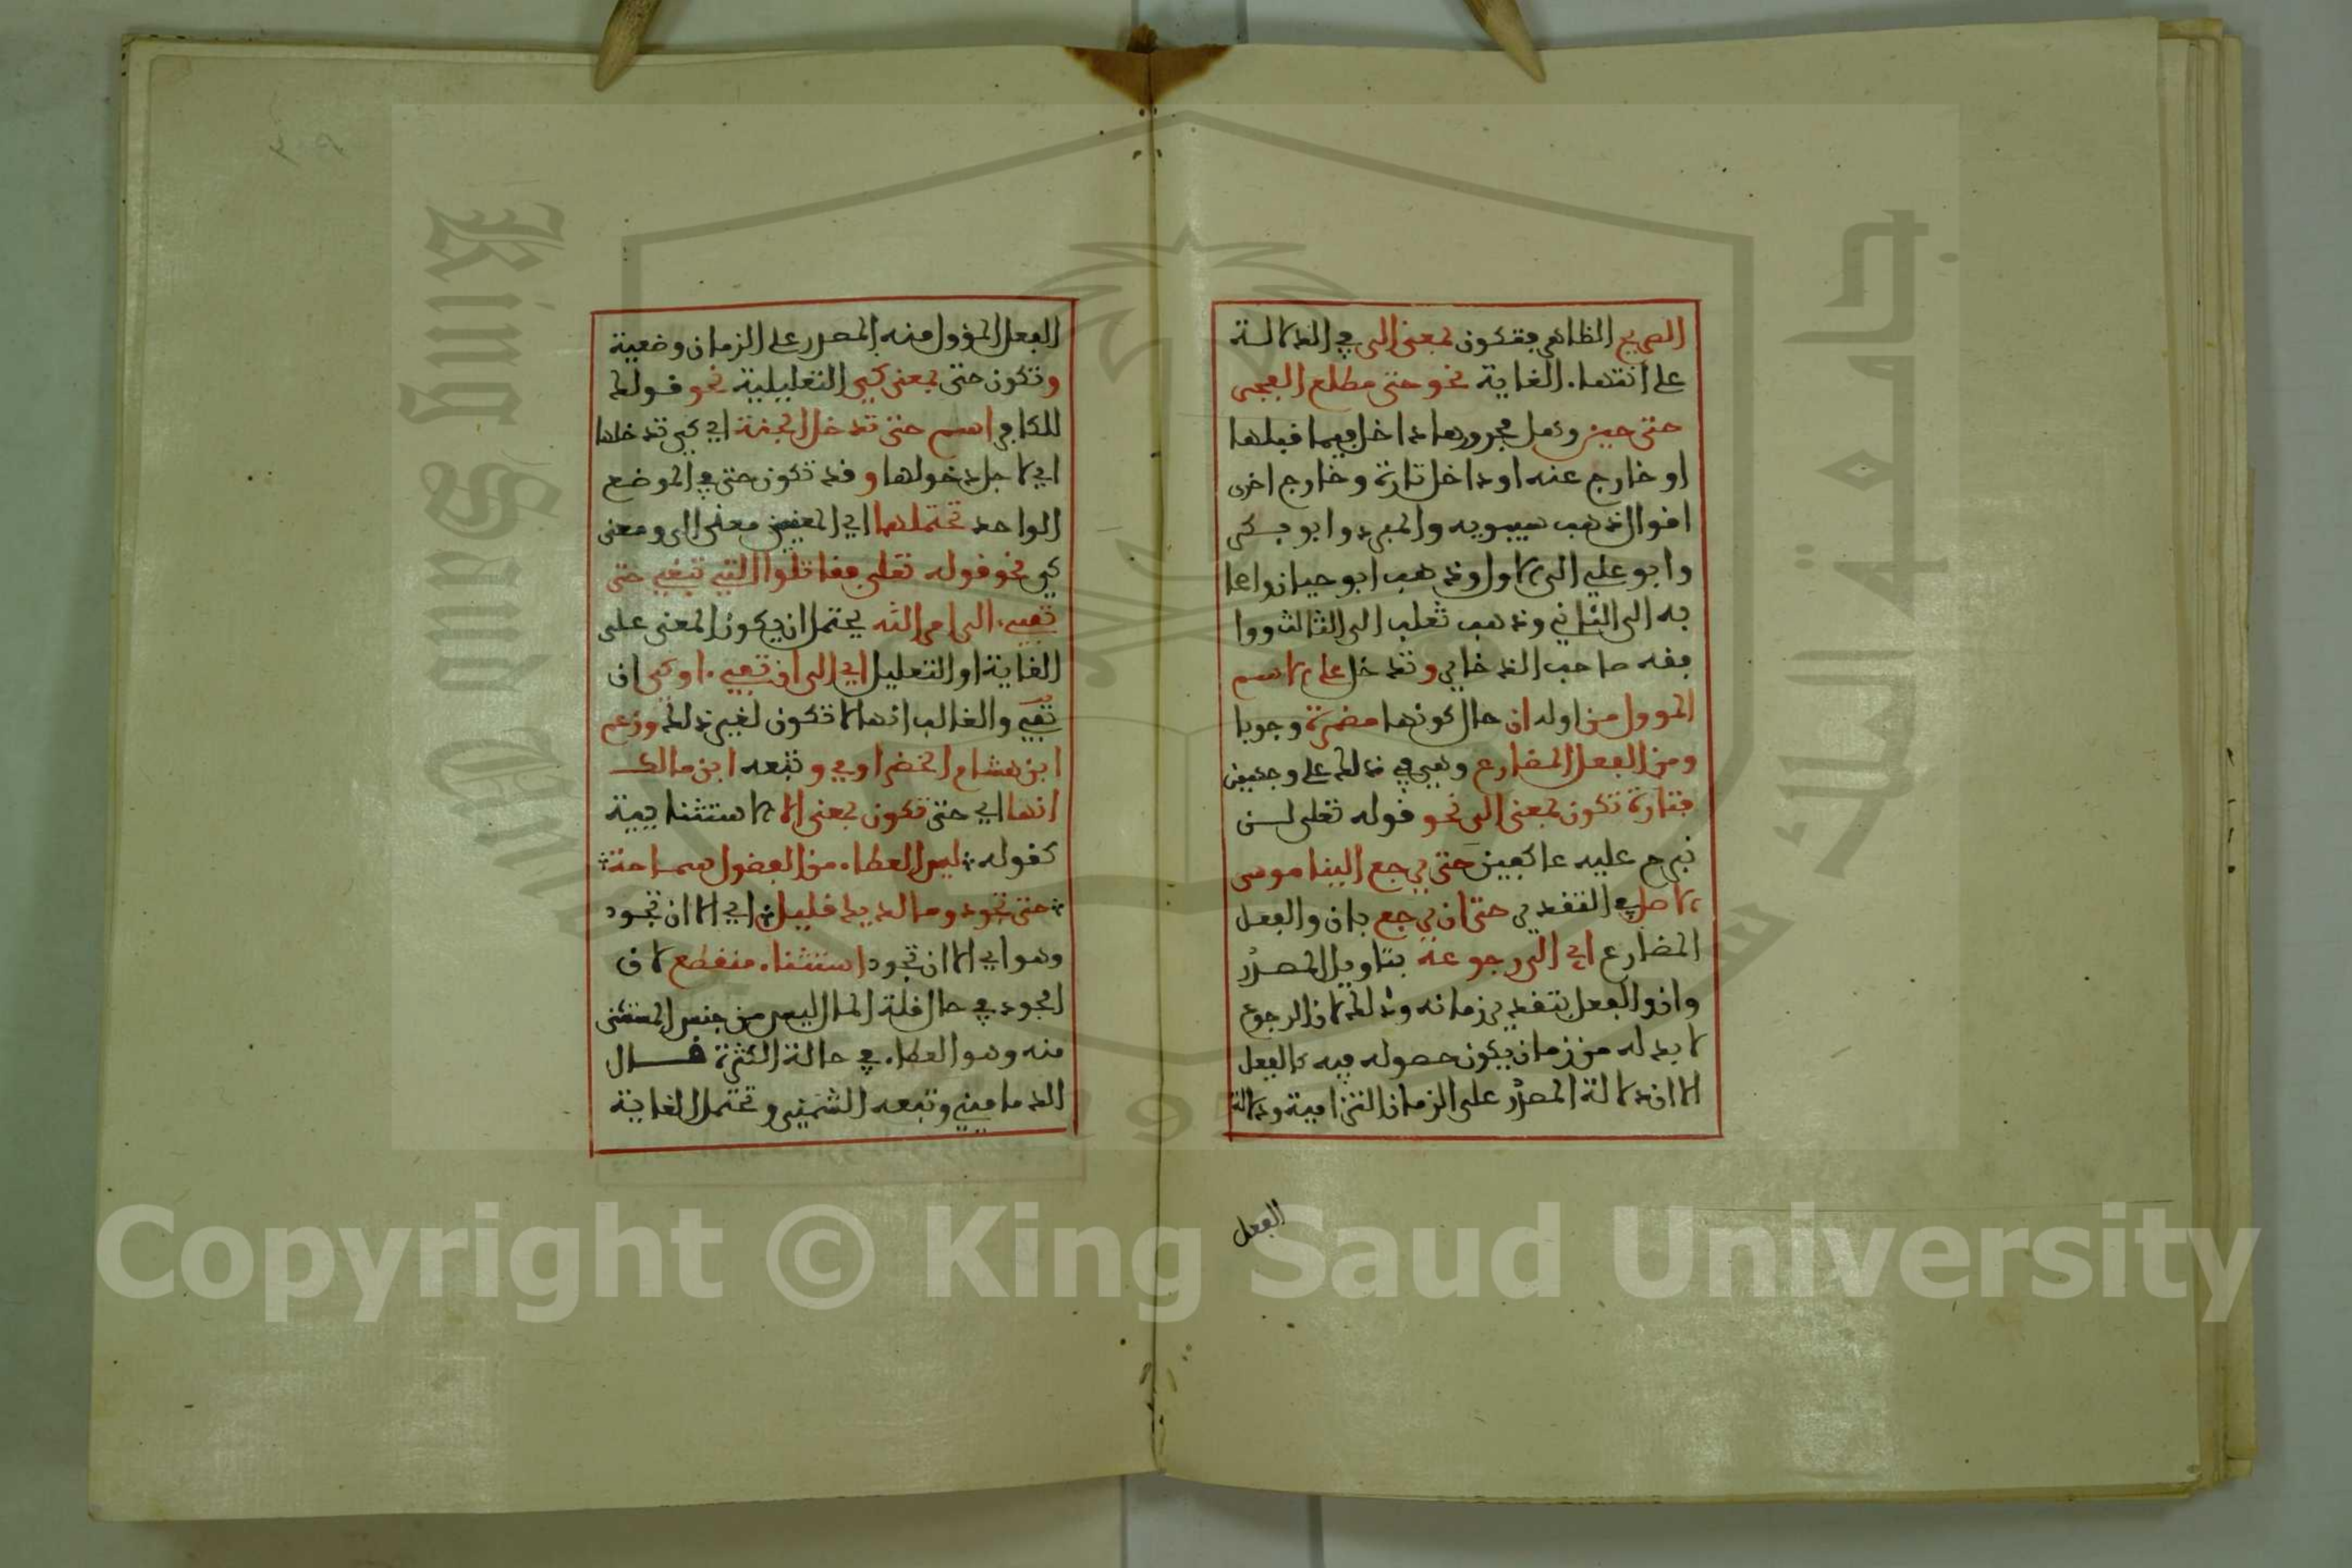 الصريح الظاهر فتكون بمعنى الى في الدلالة
على انتهاء الغاية نحو حتى مطلع الفجر
حتى حين وهل مجرورها داخل فيما قبلها
او خارج عنه او داخل تارة وخارج اخرى
اقوال ذهب سيبويه والمبرد وابو بكر
وابو علي الى الاول وذهب ابو حيان واصحا
به الى الثاني وذهب ثعلب الى الثالث ووا
فقه صاحب الذخاير وتدخل على الاسم
الموول من اوله ان حال كونها مضمرة وجوبا
ومن الفعل المضارع وهي في ذلك على وجهين
فتارة تكون بمعنى الى نحو قوله تعلى لن
نبرح عليه عاكفين حتى يرجع الينا موسى
الاصل في التقدير حتى ان يرجع بان والفعل
المضارع اي الى رجوعه بتاويل المصدر
وان والفعل بتقدير زمانه وذلك لان الرجوع
لا بد له من زمان يكون حصوله فيه كالفعل
الا ان دلالة المصدر على الزمان التزامية ودلالة
الفعل
الفعل المؤول منه المصدر على الزمان وضعية
وتكون حتى بمعنى كي التعليلية نحو قولك
للكافر اسلم حتى تدخل الجنة اي كي تدخلها
اي لاجل دخولها وقد تكون حتى في الموضع
الواحد تحتملهما اي المعنيين معنى الى ومعنى
كي نحو قوله تعلى فقاتلوا التي تبغي حتى
تفيء الى امر الله يحتمل ان يكون المعنى على
الغاية او التعليل اي الى ان تفيء او كي ان
تفيء والغالب انها لا تكون لغير ذلك وزعم
ابن هشام الخضراوي وتبعه ابن مالك
انها اي حتى تكون بمعنى الا الاستثنايية
كقوله ليس العطاء من الفضول سماحة
حتى تجود وما لديك قليل اي الا ان تجود
وهو اي الا ان تجود استثناء منقطع لان
الجود في حال قلة المال ليس من جنس المستثنى
منه وهو العطاء في حالة الكثرة قال
الدماميني وتبعه الشمني وتحتمل الغاية
Copyright © King Saud University